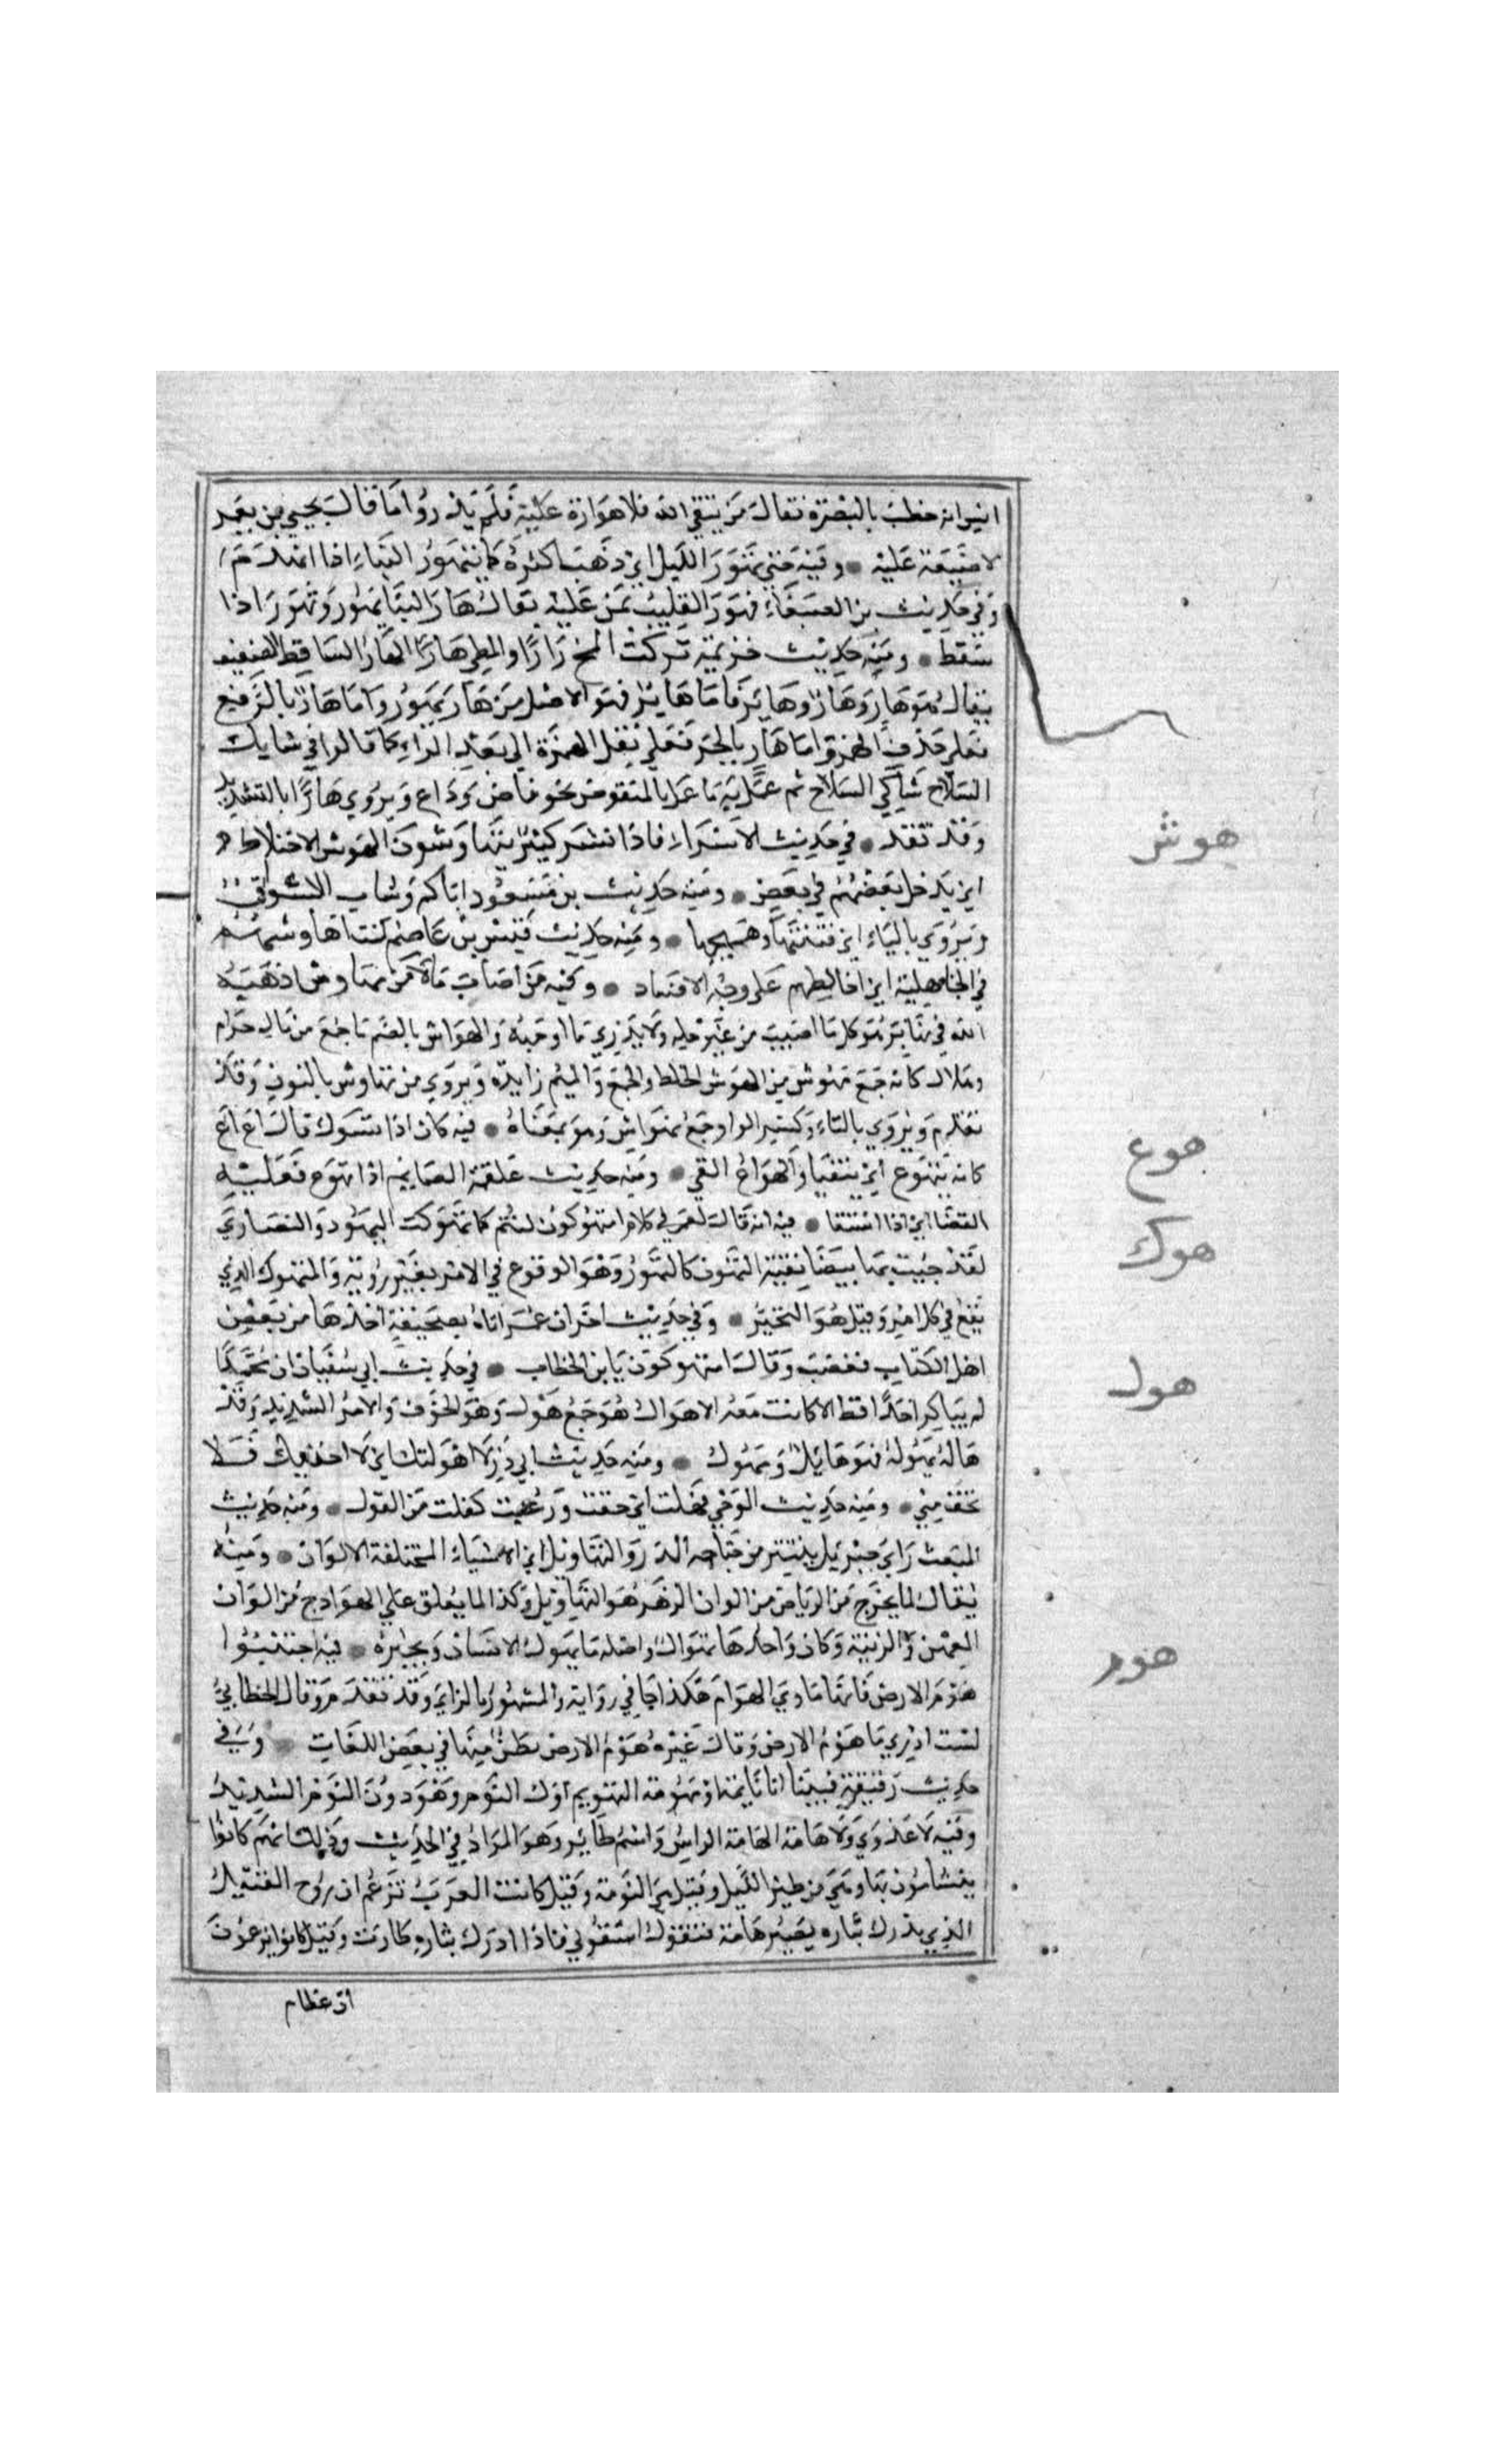 انس انه خطب بالبصرة فقال من يتقي الله فلا هوارة عليه فلم يدروا ما قال يحيى بن يعمر
لا ضيعة عليه ● وفيه حتى تهور الليل اي ذهب اكثره كما يتهور البناء اذا انهدم
وفي حديث بن الصبغاء فتهور القليب بمن عليه يقال هار البنا يهور وتهور اذا
سقط ● ومنه حديث خزيمة تركت المخ رارا والمطي هارا الهار الساقط الضعيف
يقال هو هار وهار وهاير فاما هاير فهو الاصل من هار يهور واما هار بالرفع
فعلى حذف الهمزة واما هار بالجر فعلى نقل الهمزة الى بعد الراء كما قالوا في شايك
السلاح شاكي السلاح ثم عمل به ما عمل بالمنقوص نحو قاض وداع ويروى هارا بالتشديد
وقد تقد ● في حديث الاسراء فاذا بشر كثير يتهاوشون الهوش الاختلاط
اي يدخل بعضهم في بعض ● ومنه حديث بن مسعود اياكم وهوشات الاسواق
ويروى بالياء اي فتنتها وهيجها ● ومنه حديث قيس بن عاصم كنت اهاوشهم
في الجاهلية اي اخالطهم على وجه الافساد ● وفيه من اصاب مالا من نهاوش اذهبه
الله في نهابر هو كل ما اصيب من غير حله ولا يدري ما وجهه والهواش بالضم ما جمع من مال حرام
وحلال كانه جمع مهوش من الهوش الخلط والجمع والميم زايدة ويروى من نهاوش بالنون وقد
تقدم ويروى بالتاء وكسر الواو جمع تهواش وهو بمعناه ● فيه كان اذا تسوك قال اع اع
كانه يتهوع اي يتقيا والهواع القي ● ومنه حديث علقمة الصايم اذا تهوع فعليه
القضا اي اذا استقا ● فيه انه قال لعمر في كلام امتهوكون انتم كما تهوكت اليهود والنصارى
لقد جيت بها بيضا نقية التهوك كالتهور وهو الوقوع في الامر بغير روية والمتهوك الذي
يقع في كل امر وقيل هو التحير ● وفي حديث اخر ان عمر اتاه بصحيفة اخذها من بعض
اهل الكتاب فغضب وقال امتهوكون يا بن الخطاب ● في حديث ابي سفيان ان محمدا
لم يناكر احدا قط الا كانت معه الاهوال هو جمع هول وهو الخوف والامر الشديد وقد
هاله يهوله فهو هايل ومهول ● ومنه حديث ابي ذر لا اهولنك اي لا اخيفك فلا
تخف مني ● ومنه حديث الوحي فهلت اي خفت ورعبت كقلت من القول ● ومنه حديث
المبعث راى جبريل ينتثر من جناحه الدر والتهاويل اي الاشياء المختلفة الالوان ● ومنه
يقال لما يخرج من الرياض من الوان الزهر هو التهاويل وكذا لما يعلق على الهوادج من الوان
العهن والزينة وكان واحدها تهوال واصله ما يهول الانسان ويحيره ● فيه اجتنبوا
هوم الارض فانها ماوى الهوام هكذا جا في رواية والمشهور بالزاي وقد تقدم وقال الخطابي
لست ادري ما هوم الارض وقال غيره هوم الارض بطن منها في بعض اللغات ● وفي
حديث رقيقة فبينا انا نايمة او مهومة التهويم اول النوم وهو دون النوم الشديد
وفيه لا عدوى ولا هامة الهامة الراس واسم طاير وهو المراد في الحديث وذلك انهم كانوا
يتشامون بها وهي من طير الليل وقيل هي البومة وقيل كانت العرب تزعم ان روح القتيل
الذي يدرك بثاره يصير هامة فتقول اسقوني فاذا ادرك بثاره طارت وقيل كانوا يزعمون
ان عظام
هوش
هوع
هوك
هول
هوم